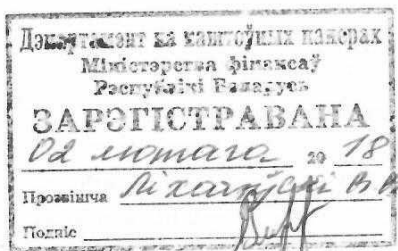 Дэпартамент па каштоўных паперах
Міністэрства фінансаў
Рэспублікі Беларусь
ЗАРЭГІСТРАВАНА
02 лютага 20 18
Прозвішча
Подпіс